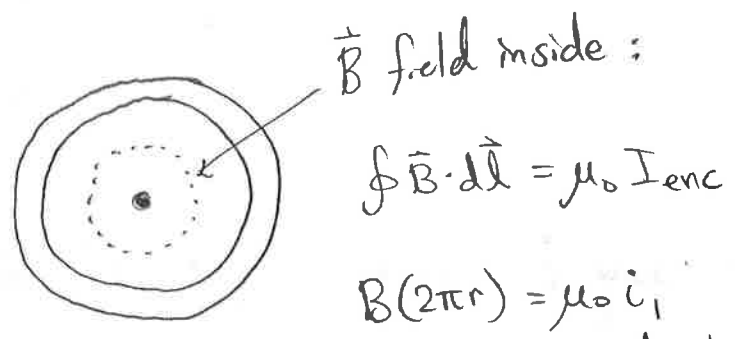 B⃗ field inside :
∮ B⃗ · dl⃗ = μ₀ I enc
B(2πr) = μ₀ i₁